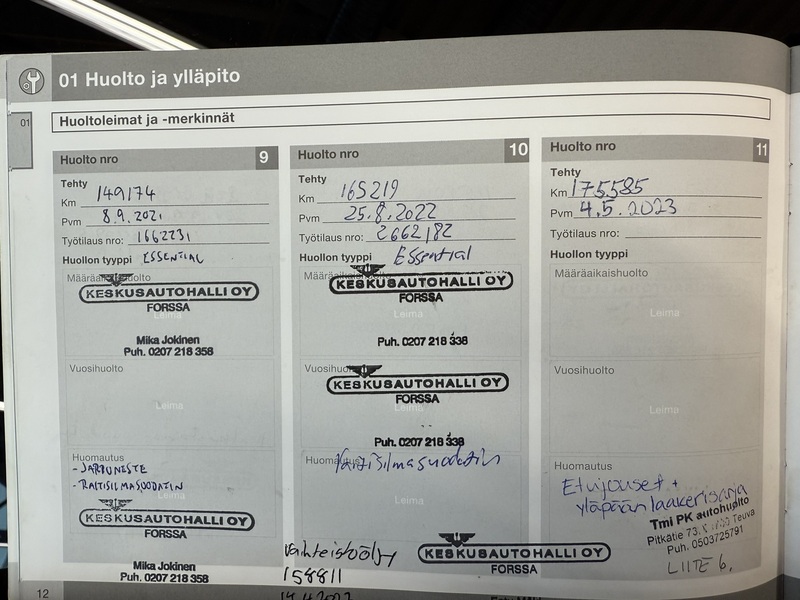 01 Huolto ja ylläpito
01
Huoltoleimat ja -merkinnät
Huolto nro 9
Tehty
Km 149174
Pvm 8.9.2021
Työtilaus nro: 1662231
Huollon tyyppi ESSENTIAL
Määräaikaishuolto
KESKUSAUTOHALLI OY
FORSSA
Leima
Mika Jokinen
Puh. 0207 218 358
Vuosihuolto
Leima
Huomautus
- JARRUNESTE
- RAITISILMASUODATIN
Leima
KESKUSAUTOHALLI OY
FORSSA
Mika Jokinen
Puh. 0207 218 358
Huolto nro 10
Tehty
Km 165219
Pvm 25.8.2022
Työtilaus nro: 2662182
Huollon tyyppi Essential
Määräaikaishuolto
KESKUSAUTOHALLI OY
FORSSA
Leima
Puh. 0207 218 338
Vuosihuolto
KESKUSAUTOHALLI OY
FORSSA
Leima
Puh. 0207 218 338
Huomautus
Leima
Vaihteistoöljy
158811
KESKUSAUTOHALLI OY
FORSSA
Huolto nro 11
Tehty
Km 175585
Pvm 4.5.2023
Työtilaus nro:
Huollon tyyppi
Määräaikaishuolto
Leima
Vuosihuolto
Leima
Huomautus
Etujouset +
yläpään laakerisarja
Tmi PK autohuolto
Pitkätie 73, Teuva
Puh. 0503725791
LIITE 6.
12